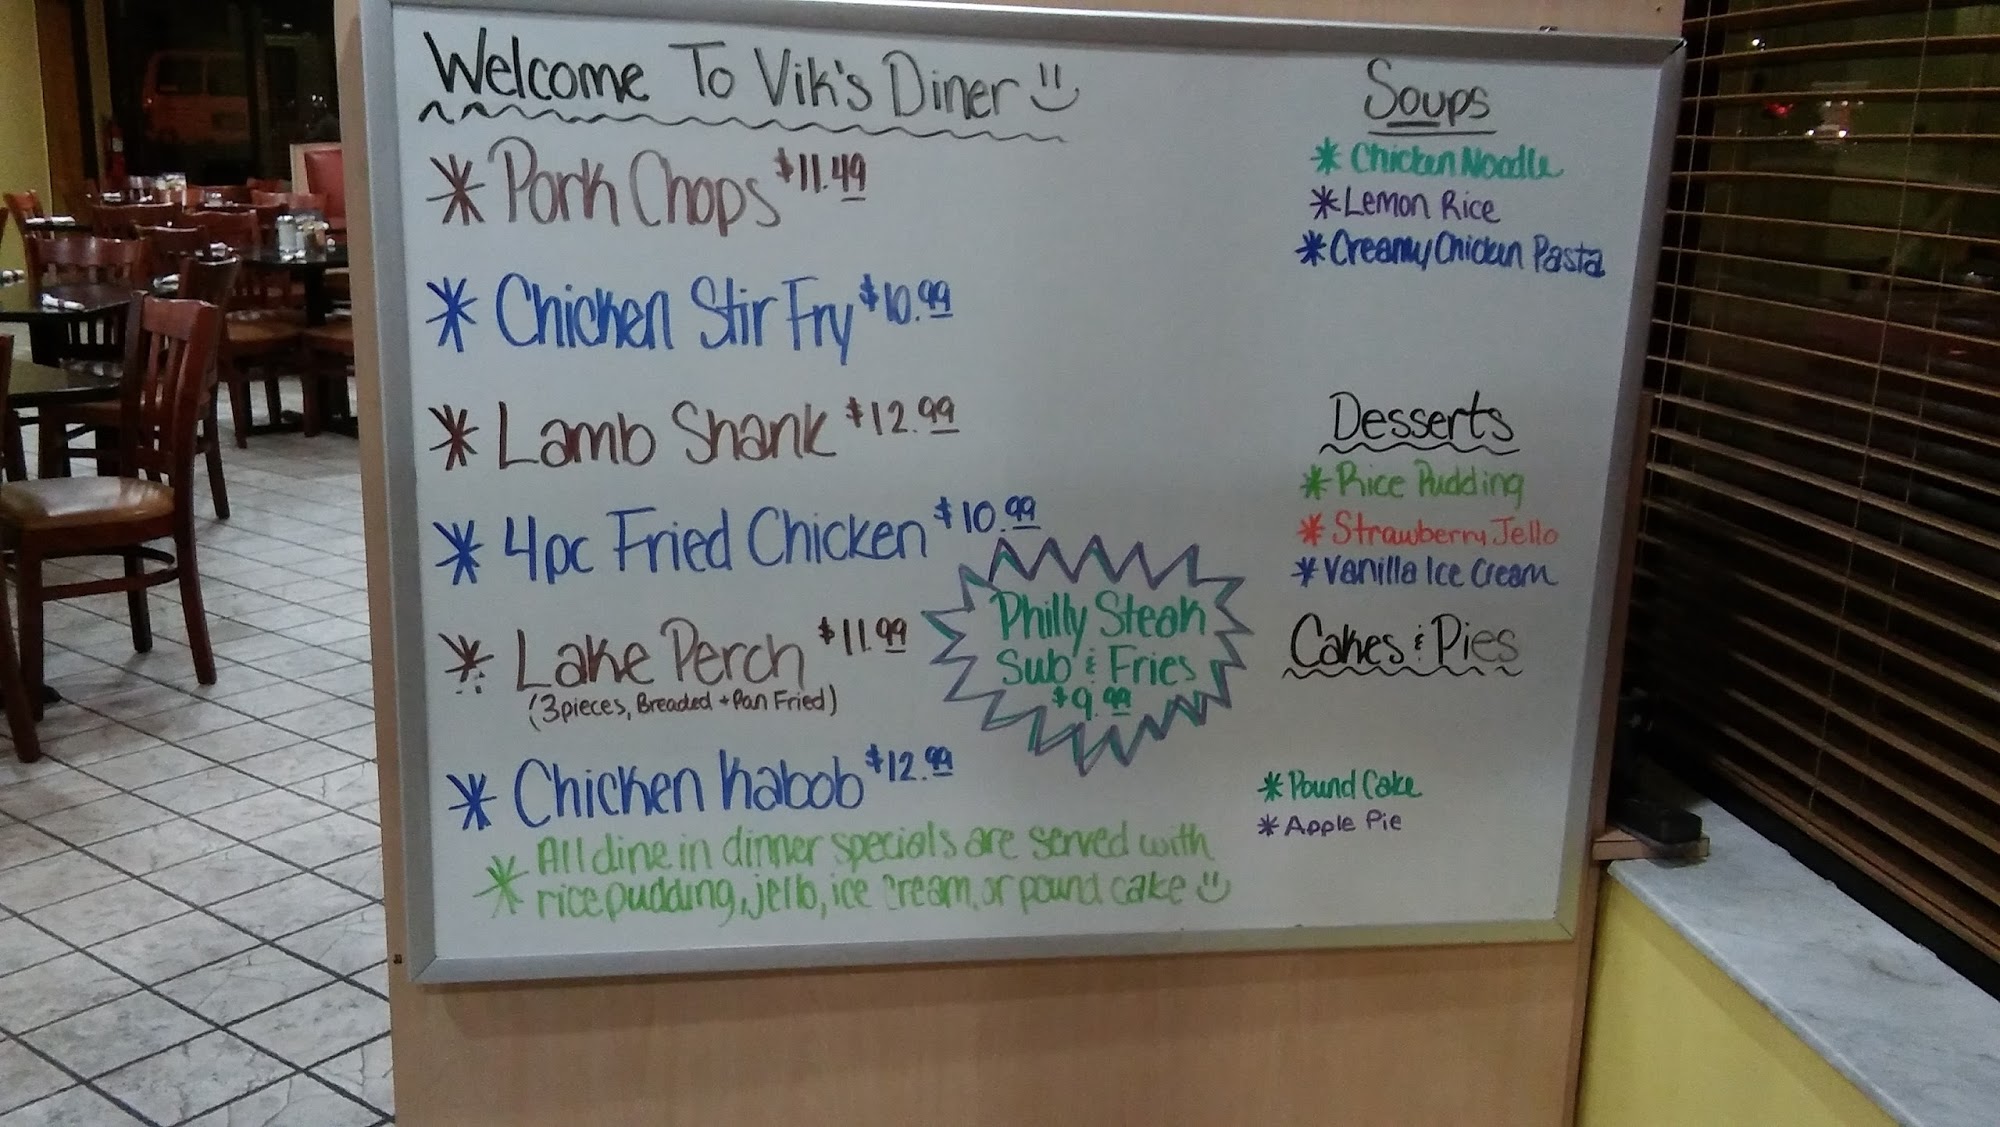 Welcome To Vik's Diner
* Pork Chops $11.49
* Chicken Stir Fry $10.99
* Lamb Shank $12.99
* 4pc Fried Chicken $10.99
* Lake Perch $11.99
(3 pieces, Breaded + Pan Fried)
* Chicken Kabob $12.99
* All dine in dinner specials are served with
rice pudding, jello, ice cream, or pound cake
Philly Steak
Sub & Fries
$9.99
Soups
* Chicken Noodle
* Lemon Rice
* Creamy Chicken Pasta
Desserts
* Rice Pudding
* Strawberry Jello
* Vanilla Ice Cream
Cakes & Pies
* Pound Cake
* Apple Pie